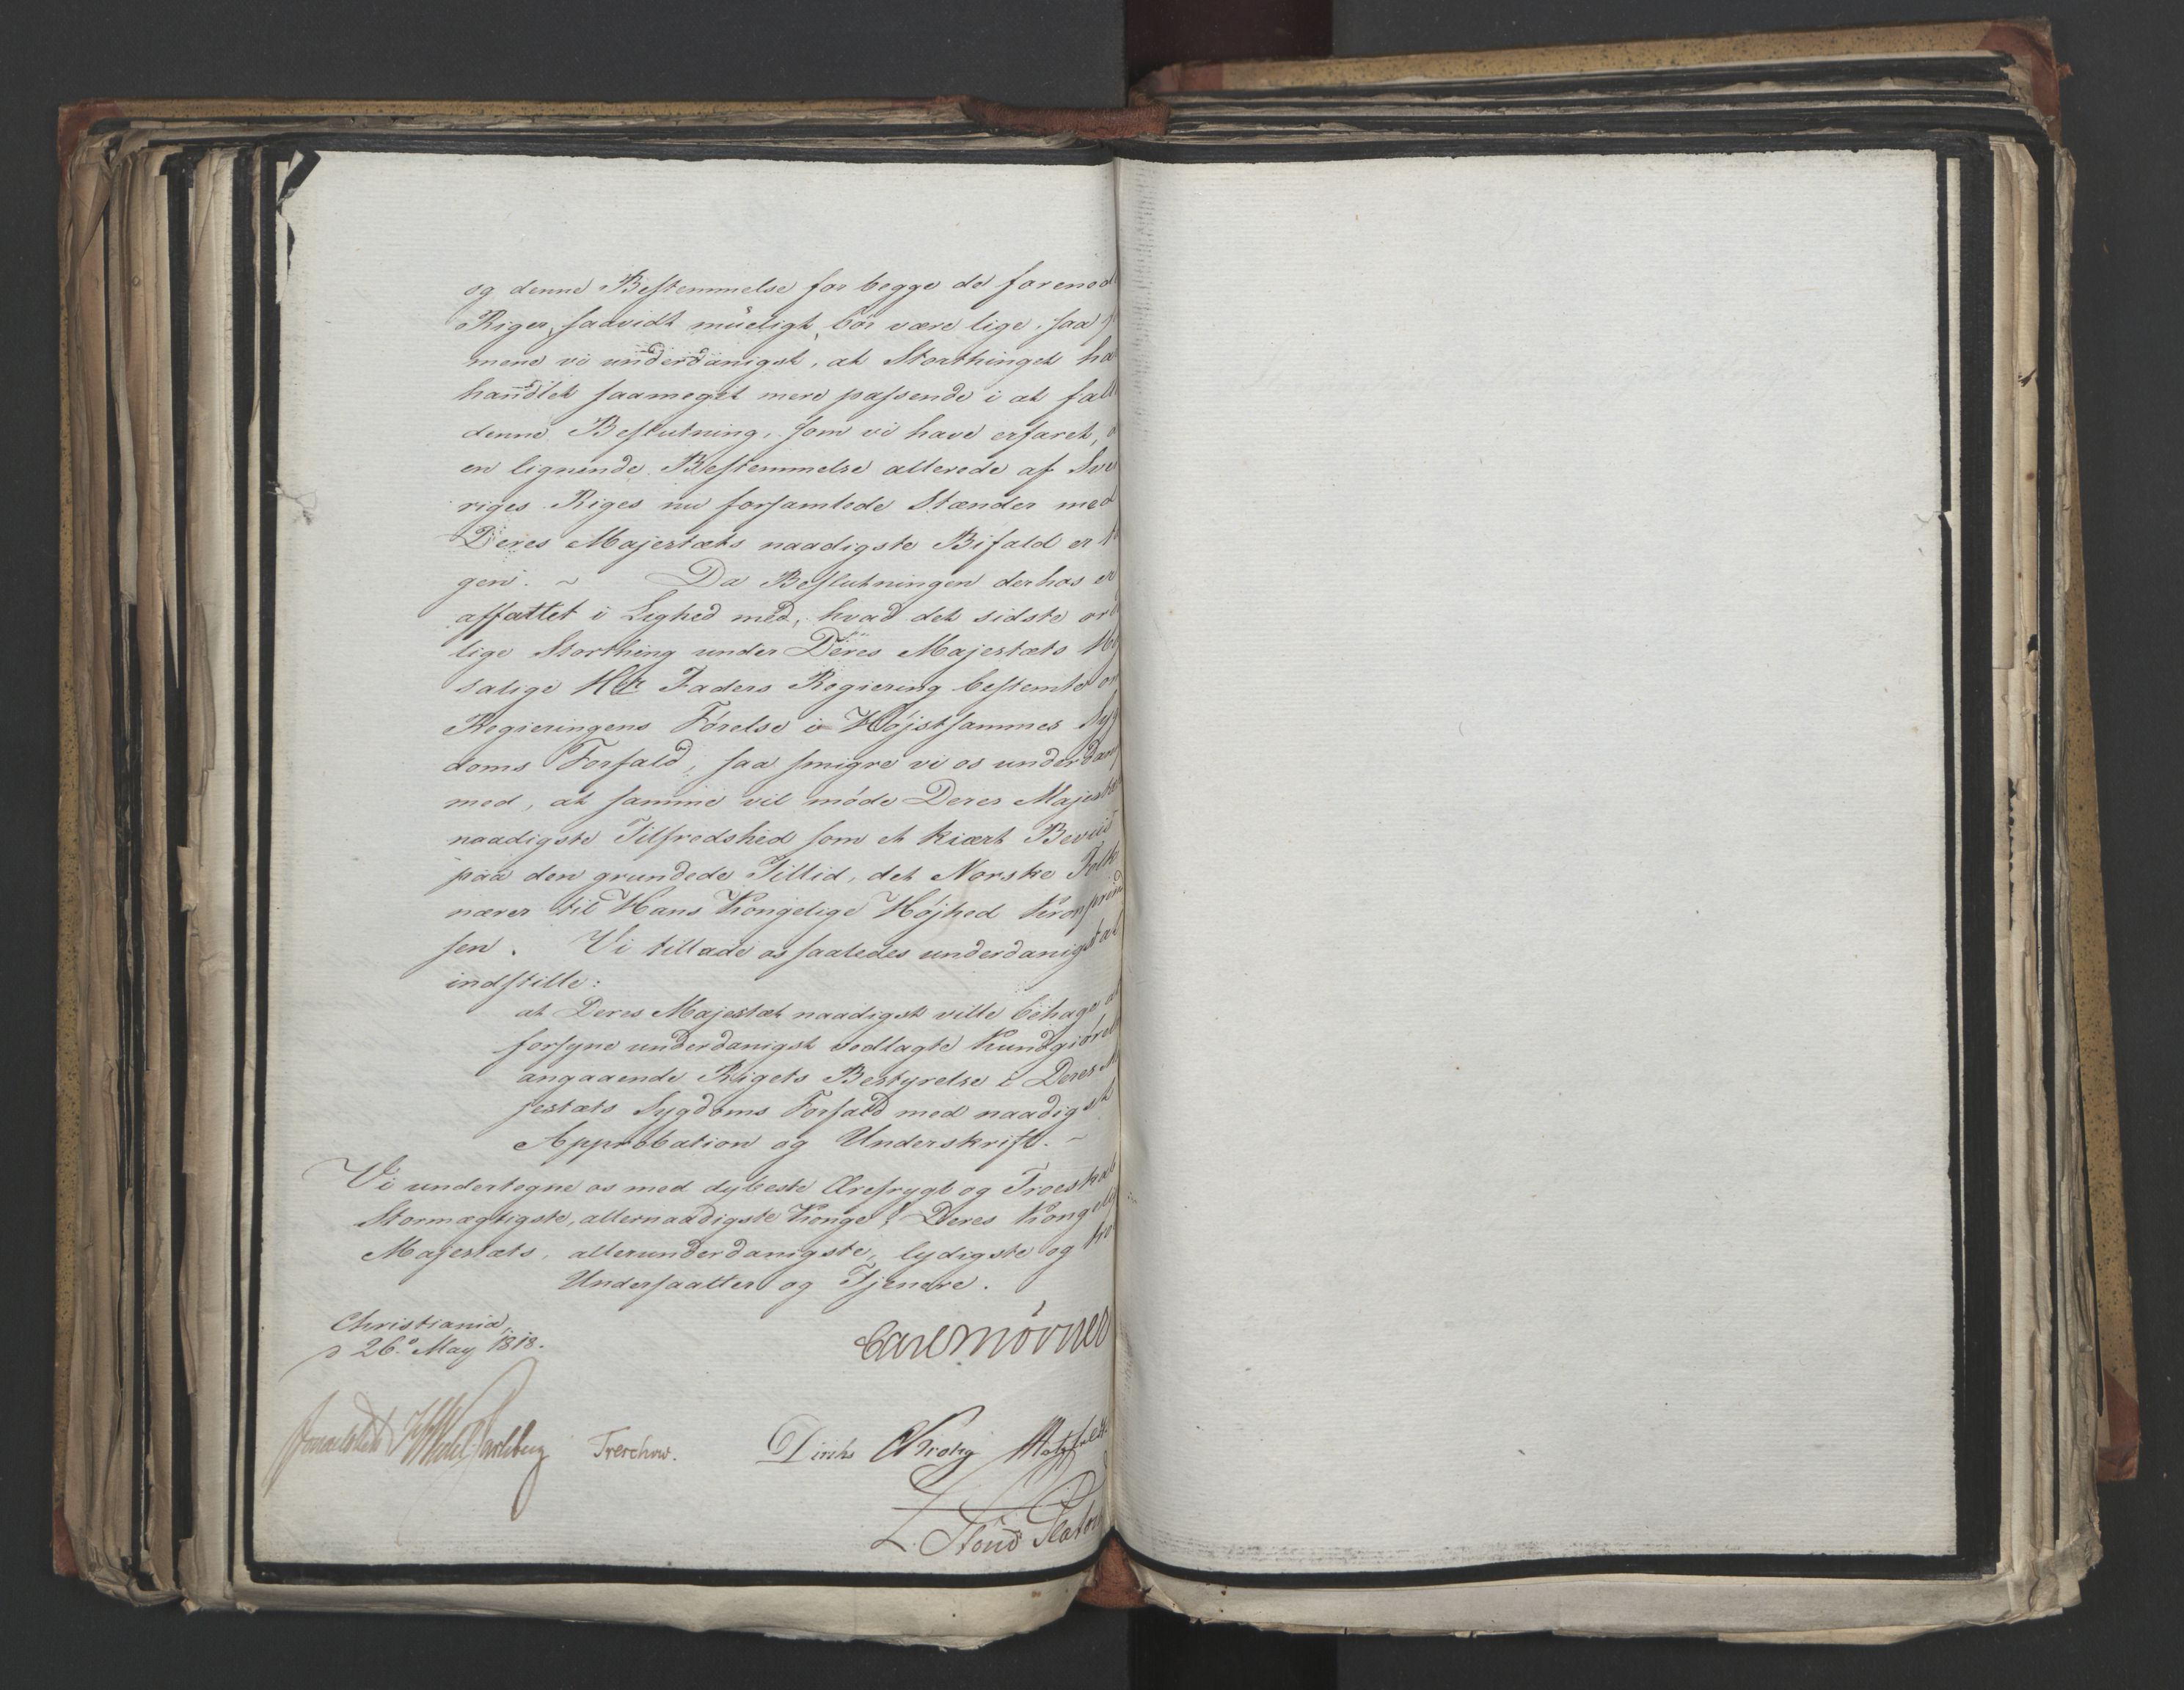 og denne Bestemmelse for begge de forened
Riger, saavidt mueligt, bör være lige, saa
mene vi underdanigst, at Storthinget ha
handlet saameget mere passende i at fatt
denne Beslutning, som vi have erfaret,
en lignende Bestemmelse allerede af Sve
riges Riges nu forsamlede Stænder med
Deres Majestæts naadigste Bifald er
gen. ~ Da Beslutningen derhos er
affattet i Lighed med, hvad det sidste ord
lige Storthing under Deres Majestæts
salige Hr Faders Regiering bestemte om
Regieringens Førelse i Højstsammes Syg
doms Forfald, saa smigre vi os underdan
med, at samme vil møde Deres Majestæ
naadigste Tilfredshed som et kiært Beviis
paa den grundede Tillid, det Norske Folk
nærer til Hans Kongelige Højhed Kronprind
sen. Vi tillade os saaledes underdanigst at
indstille:
at Deres Majestæt naadigst ville behage at
forsyne underdanigst vedlagte Kundgiørel
angaaende Rigets Bestyrelse i Deres M
jestæts Sygdoms Forfald med naadigst
Approbation og Underskrift. ~
Vi undertegne os med dybeste Ærefrygt og Troeskab
Stormægtigste, allernaadigste Konge! Deres Kongeli
Majestæts, allerunderdanigste, lydigste og tro
Undersaatter og Tjenere.
Christiania,
d 26. May 1818.
Carl Mörner
Sommerhielm HWedel Jarlsberg Treschow. Diriks CKrohg Motzfeldt
L Stoud Platou